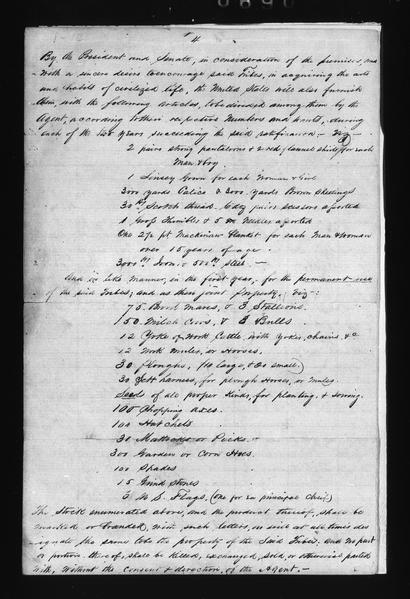 4
By the President and Senate, in consideration of the premises, and
with a sincere desire to encourage said Tribes, in acquiring the arts
and habits of civilized life, the United States will also furnish
them, with the following articles, to be divided among them by the
Agent, according to their respective numbers and wants, during
each of the two years, succeeding the said ratification — viz —
2 pairs strong pantaloons & 2 red flannel shirts for each
Man & boy.
1 Linsey Gown for each Woman & Girl
3000 yards Calico & 3000 yards Brown Sheetings
30 lbs Scotch thread. & doz pairs scissors assorted
1 Groce Thimbles & 5000 Needles assorted
One 2½ pt Mackinaw Blanket for each Man & Woman
over 15 years of age.
3000 lbs Iron. & 500 lbs steel —
And in like manner, in the first year, for the permanent use
of the said Tribes; and as their joint property, viz—:
75 Brood Mares, & 3 Stallions.
150 Milch Cows, & 8 Bulls.
12 Yoke of Work Cattle with Yokes, Chains, &c
12 Work Mules, or Horses.
30 Ploughs, (10 large, & 20 small,)
30 Sett harness, for plough Horses, or Mules.
Seeds of all proper kinds, for planting, & sowing.
100 Chopping axes.
100 Hatchets
30 Mattocks or Picks.
300 Garden or Corn Hoes.
100 Spades
15 Grind Stones
6 U.S. Flags, (One for Ea principal Chief)
The Stock enumerated above, and the product thereof, shall be
marked or branded, with such letters, as will at all times des
ignate the same to be the property of the Said Tribes. And no part
or portion thereof, shall be killed, exchanged, sold, or otherwise parted
with, without the consent & direction, of the Agent.—